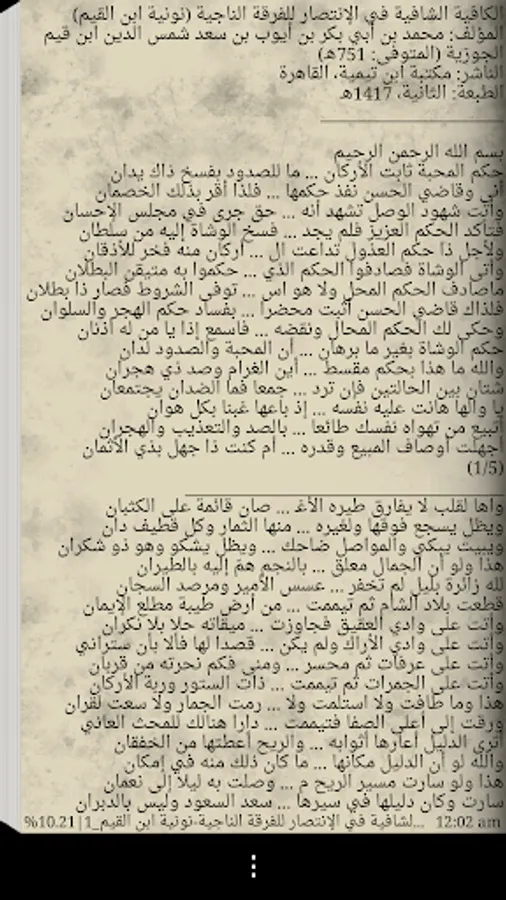 الكافية الشافية في الإنتصار للفرقة الناجية (نونية ابن القيم)
المؤلف: محمد بن أبي بكر بن أيوب بن سعد شمس الدين ابن قيم
الجوزية (المتوفى: 751هـ)
الناشر: مكتبة ابن تيمية، القاهرة
الطبعة: الثانية، 1417هـ
بسم الله الرحمن الرحيم
حكم المحبة ثابت الأركان ... ما للصدود بفسخ ذاك يدان
أنى وقاضي الحسن نفذ حكمها ... فلذا أقر بذلك الخصمان
وأتت شهود الوصل تشهد أنه ... حق جرى في مجلس الإحسان
فتأكد الحكم العزيز فلم يجد ... فسخ الوشاة إليه من سلطان
ولأجل ذا حكم العذول تداعت ال ... أركان منه فخر للأذقان
وأتى الوشاة فصادفوا الحكم الذي ... حكموا به متيقن البطلان
ماصادف الحكم المحل ولا هو اس ... توفى الشروط فصار ذا بطلان
فلذاك قاضي الحسن أثبت محضرا ... بفساد حكم الهجر والسلوان
وحكى لك الحكم المحال ونقضه ... فاسمع إذا يا من له أذنان
حكم الوشاة بغير ما برهان ... أن المحبة والصدود لدان
والله ما هذا بحكم مقسط ... أين الغرام وصد ذي هجران
شتان بين الحالتين فإن ترد ... جمعا فما الضدان يجتمعان
يا والها هانت عليه نفسه ... إذ باعها غبنا بكل هوان
أتبيع من تهواه نفسك طائعا ... بالصد والتعذيب والهجران
أجهلت أوصاف المبيع وقدره ... أم كنت ذا جهل بذي الأثمان
(1/5)
واها لقلب لا يفارق طيره الأغـ ... صان قائمة على الكثبان
ويظل يسجع فوقها ولغيره ... منها الثمار وكل قطيف دان
ويبيت يبكي والمواصل ضاحك ... ويظل يشكو وهو ذو شكران
هذا ولو أن الجمال معلق ... بالنجم هم إليه بالطيران
لله زائرة بليل لم تخفر ... عسس الأمير ومرصد السجان
قطعت بلاد الشام ثم تيممت ... من أرض طيبة مطلع الإيمان
وأتت على وادي العقيق فجاوزت ... ميقاته حلا بلا نكران
وأتت على وادي الأراك ولم يكن ... قصدا لها فألا بأن ستراني
وأتت على عرفات ثم محسر ... ومنى فكم نحرته من قربان
وأتت على الجمرات ثم تيممت ... ذات الستور وربة الأركان
هذا وما طافت ولا استلمت ولا ... رمت الجمار ولا سعت لقران
ورقت إلى أعلى الصفا فتيممت ... دارا هنالك للمحث العاني
أترى الدليل أعارها أثوابه ... والريح أعطتها من الخفقان
والله لو أن الدليل مكانها ... ما كان ذلك منه في إمكان
هذا ولو سارت مسير الريح م ... وصلت به ليلا إلى نعمان
سارت وكان دليلها في سيرها ... سعد السعود وليس بالدبران
12:02 am ...لشافية في الإنتصار للفرقة الناجية-نونية ابن القيم_1|10.21%